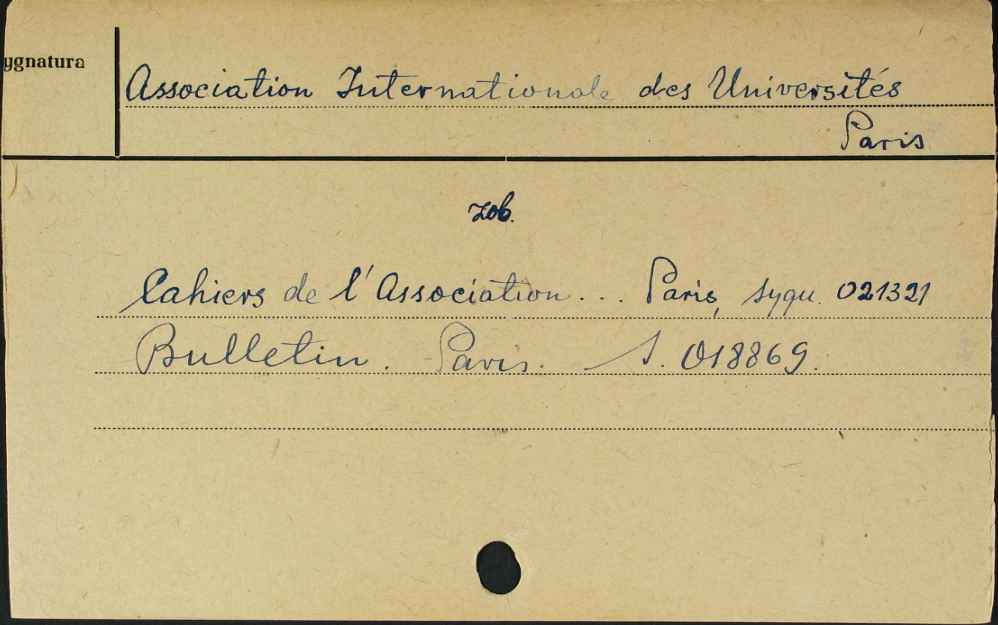 ygnatura
Association Internationale des Universités
Paris
zob.
Cahiers de l'Association... Paris, sygn. 021321
Bulletin. Paris. S. 018869.